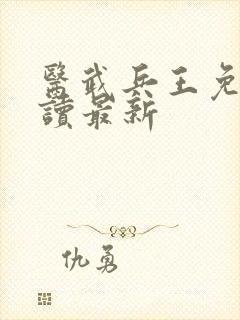 醫武兵王免
讀最新
仇勇